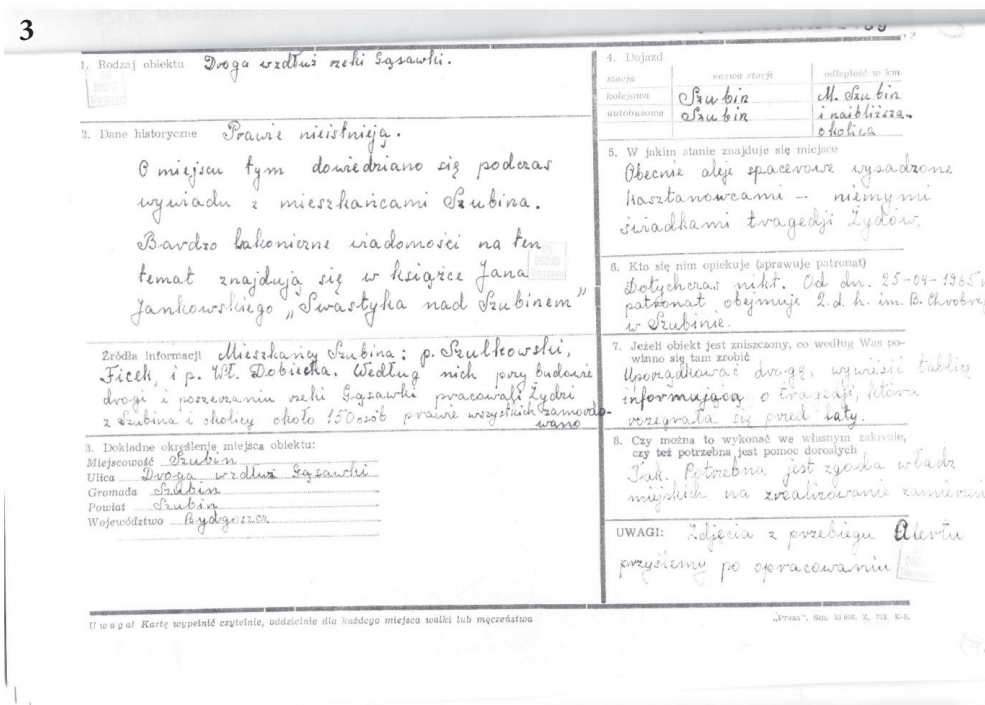 3
1. Rodzaj obiektu Droga wzdłuż rzeki Gąsawki.
2. Dane historyczne Prawie nieistnieją.
O miejscu tym dowiedziano się podczas
wywiadu z mieszkańcami Szubina.
Bardzo lakoniczne wiadomości na ten
temat znajdują się w książce Jana
Jankowskiego „Swastyka nad Szubinem”
Źródła informacji Mieszkańcy Szubina: p. Szulkowski,
Ficek, i p. Wł. Dobiecka. Według nich przy budowie
drogi i poszerzaniu rzeki Gąsawki pracowali Żydzi
z Szubina i okolicy około 150 osób prawie wszystkich zamordo-
wano
3. Dokładne określenie miejsca obiektu:
Miejscowość Szubin
Ulica Droga wzdłuż Gąsawki
Gromada Szubin
Powiat Szubin
Województwo Bydgoszcz
4. Dojazd
stacja nazwa stacji odległość w km
kolejowa Szubin M. Szubin
autobusowa Szubin i najbliższa
okolica
5. W jakim stanie znajduje się miejsce
Obecnie aleje spacerowe wysadzone
kasztanowcami – niemymi
świadkami tragedji Żydów.
6. Kto się nim opiekuje (sprawuje patronat)
Dotychczas nikt. Od dn. 25-04-1965
patronat obejmuje 2. d. h. im. B. Chrobre
w Szubinie.
7. Jeżeli obiekt jest zniszczony, co według Was po-
winno się tam zrobić
Uporządkować drogę, wywiesić tablicę
informującą o tragedji, która
rozegrała się przed laty.
8. Czy można to wykonać we własnym zakresie,
czy też potrzebna jest pomoc dorosłych
Tak. Potrzebna jest zgoda władz
miejskich na zrealizowanie zamierzeń
UWAGI: Zdjęcia z przebiegu Alertu
przyślemy po opracowaniu
Uwaga! Kartę wypełnić czytelnie, oddzielnie dla każdego miejsca walki lub męczeństwa
„Prasa”, Szn.